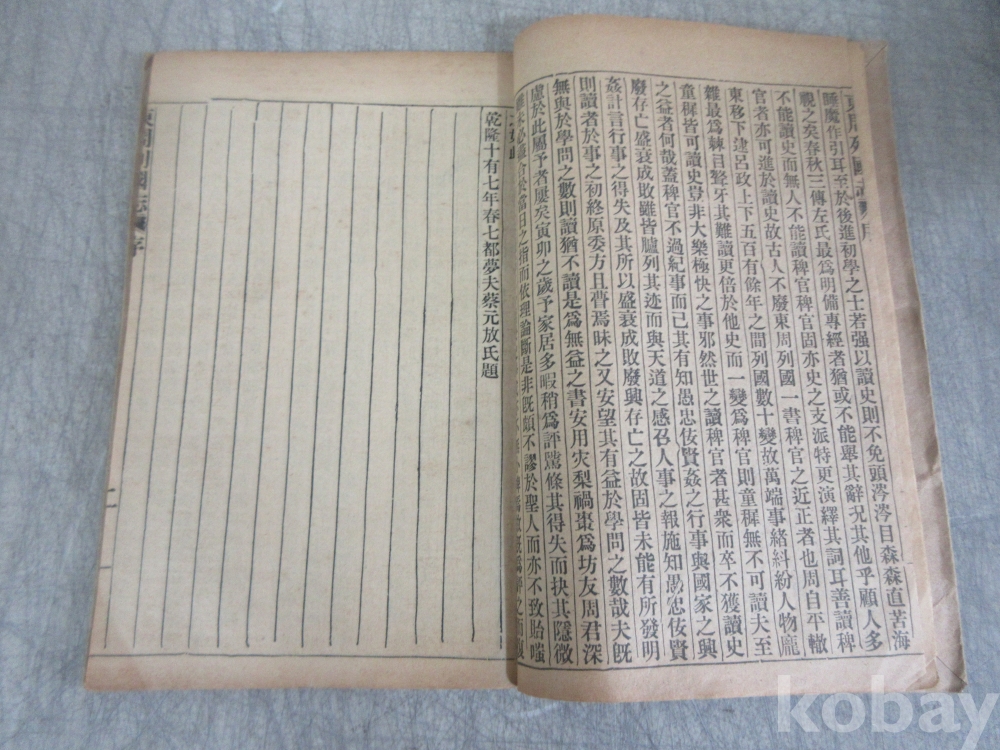 睡魔作引耳至於後進初學之士若强以讀史則不免頭涔涔目森森直苦海
覩之矣春秋三傳左氏最爲明備專經者猶或不能舉其辭况其他乎顧人多
不能讀史而無人不能讀稗官稗官固亦史之支派特更演繹其詞耳善讀稗
官者亦可進於讀史故古人不廢東周列國一書稗官之近正者也周自平轍
東移下逮呂政上下五百有餘年之間列國數十變故萬端事緒糾紛人物龐
雜最爲棘目聱牙其難讀更倍於他史而一變爲稗官則童穉無不可讀夫至
童穉皆可讀史豈非大樂極快之事邪然世之讀稗官者甚衆而卒不獲讀史
之益者何哉蓋稗官不過紀事而已其有知愚忠佞賢姦之行事與國家之興
廢存亡盛衰成敗雖皆臚列其迹而與天道之感召人事之報施知愚忠佞賢
姦計言行事之得失及其所以盛衰成敗廢興存亡之故固皆未能有所發明
則讀者於事之初終原委方且瞢焉昧之又安望其有益於學問之數哉夫既
無與於學問之數則讀猶不讀是爲無益之書安用灾梨禍棗爲坊友周君深
慮於此屬予者屢矣寅卯之歲予家居多暇稍爲評騭條其得失而抉其隱微
合於當日之指而依理論斷是非既頗不謬於聖人而亦不致貽嗤
乾隆十有七年春七都夢夫蔡元放氏題
序
二
kobay